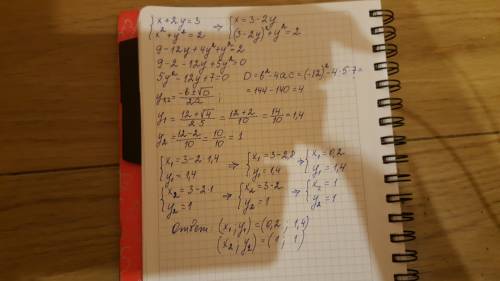 {x+2y=3 → {x=3-2y
{x²+y²=2 {(3-2y)²+y²=2
9-12y+4y²+y²=2
9-2-12y+5y²=0
5y²-12y+7=0 D=b²-4ac=(-12)²-4·5·7=
=144-140=4
y₁,₂=(-b±√D)/2a;
y₁=(12+√4)/(2·5)=(12+2)/10=14/10=1,4
y₂=(12-2)/10=10/10=1
{x₁=3-2·1,4 → {x₁=3-2,8 → {x₁=0,2
{y₁=1,4 {y₁=1,4 {y₁=1,4
{x₂=3-2·1 → {x₂=3-2 → {x₂=1
{y₂=1 {y₂=1 {y₂=1
Ответ: (x₁; y₁)=(0,2; 1,4)
(x₂; y₂)=(1; 1)